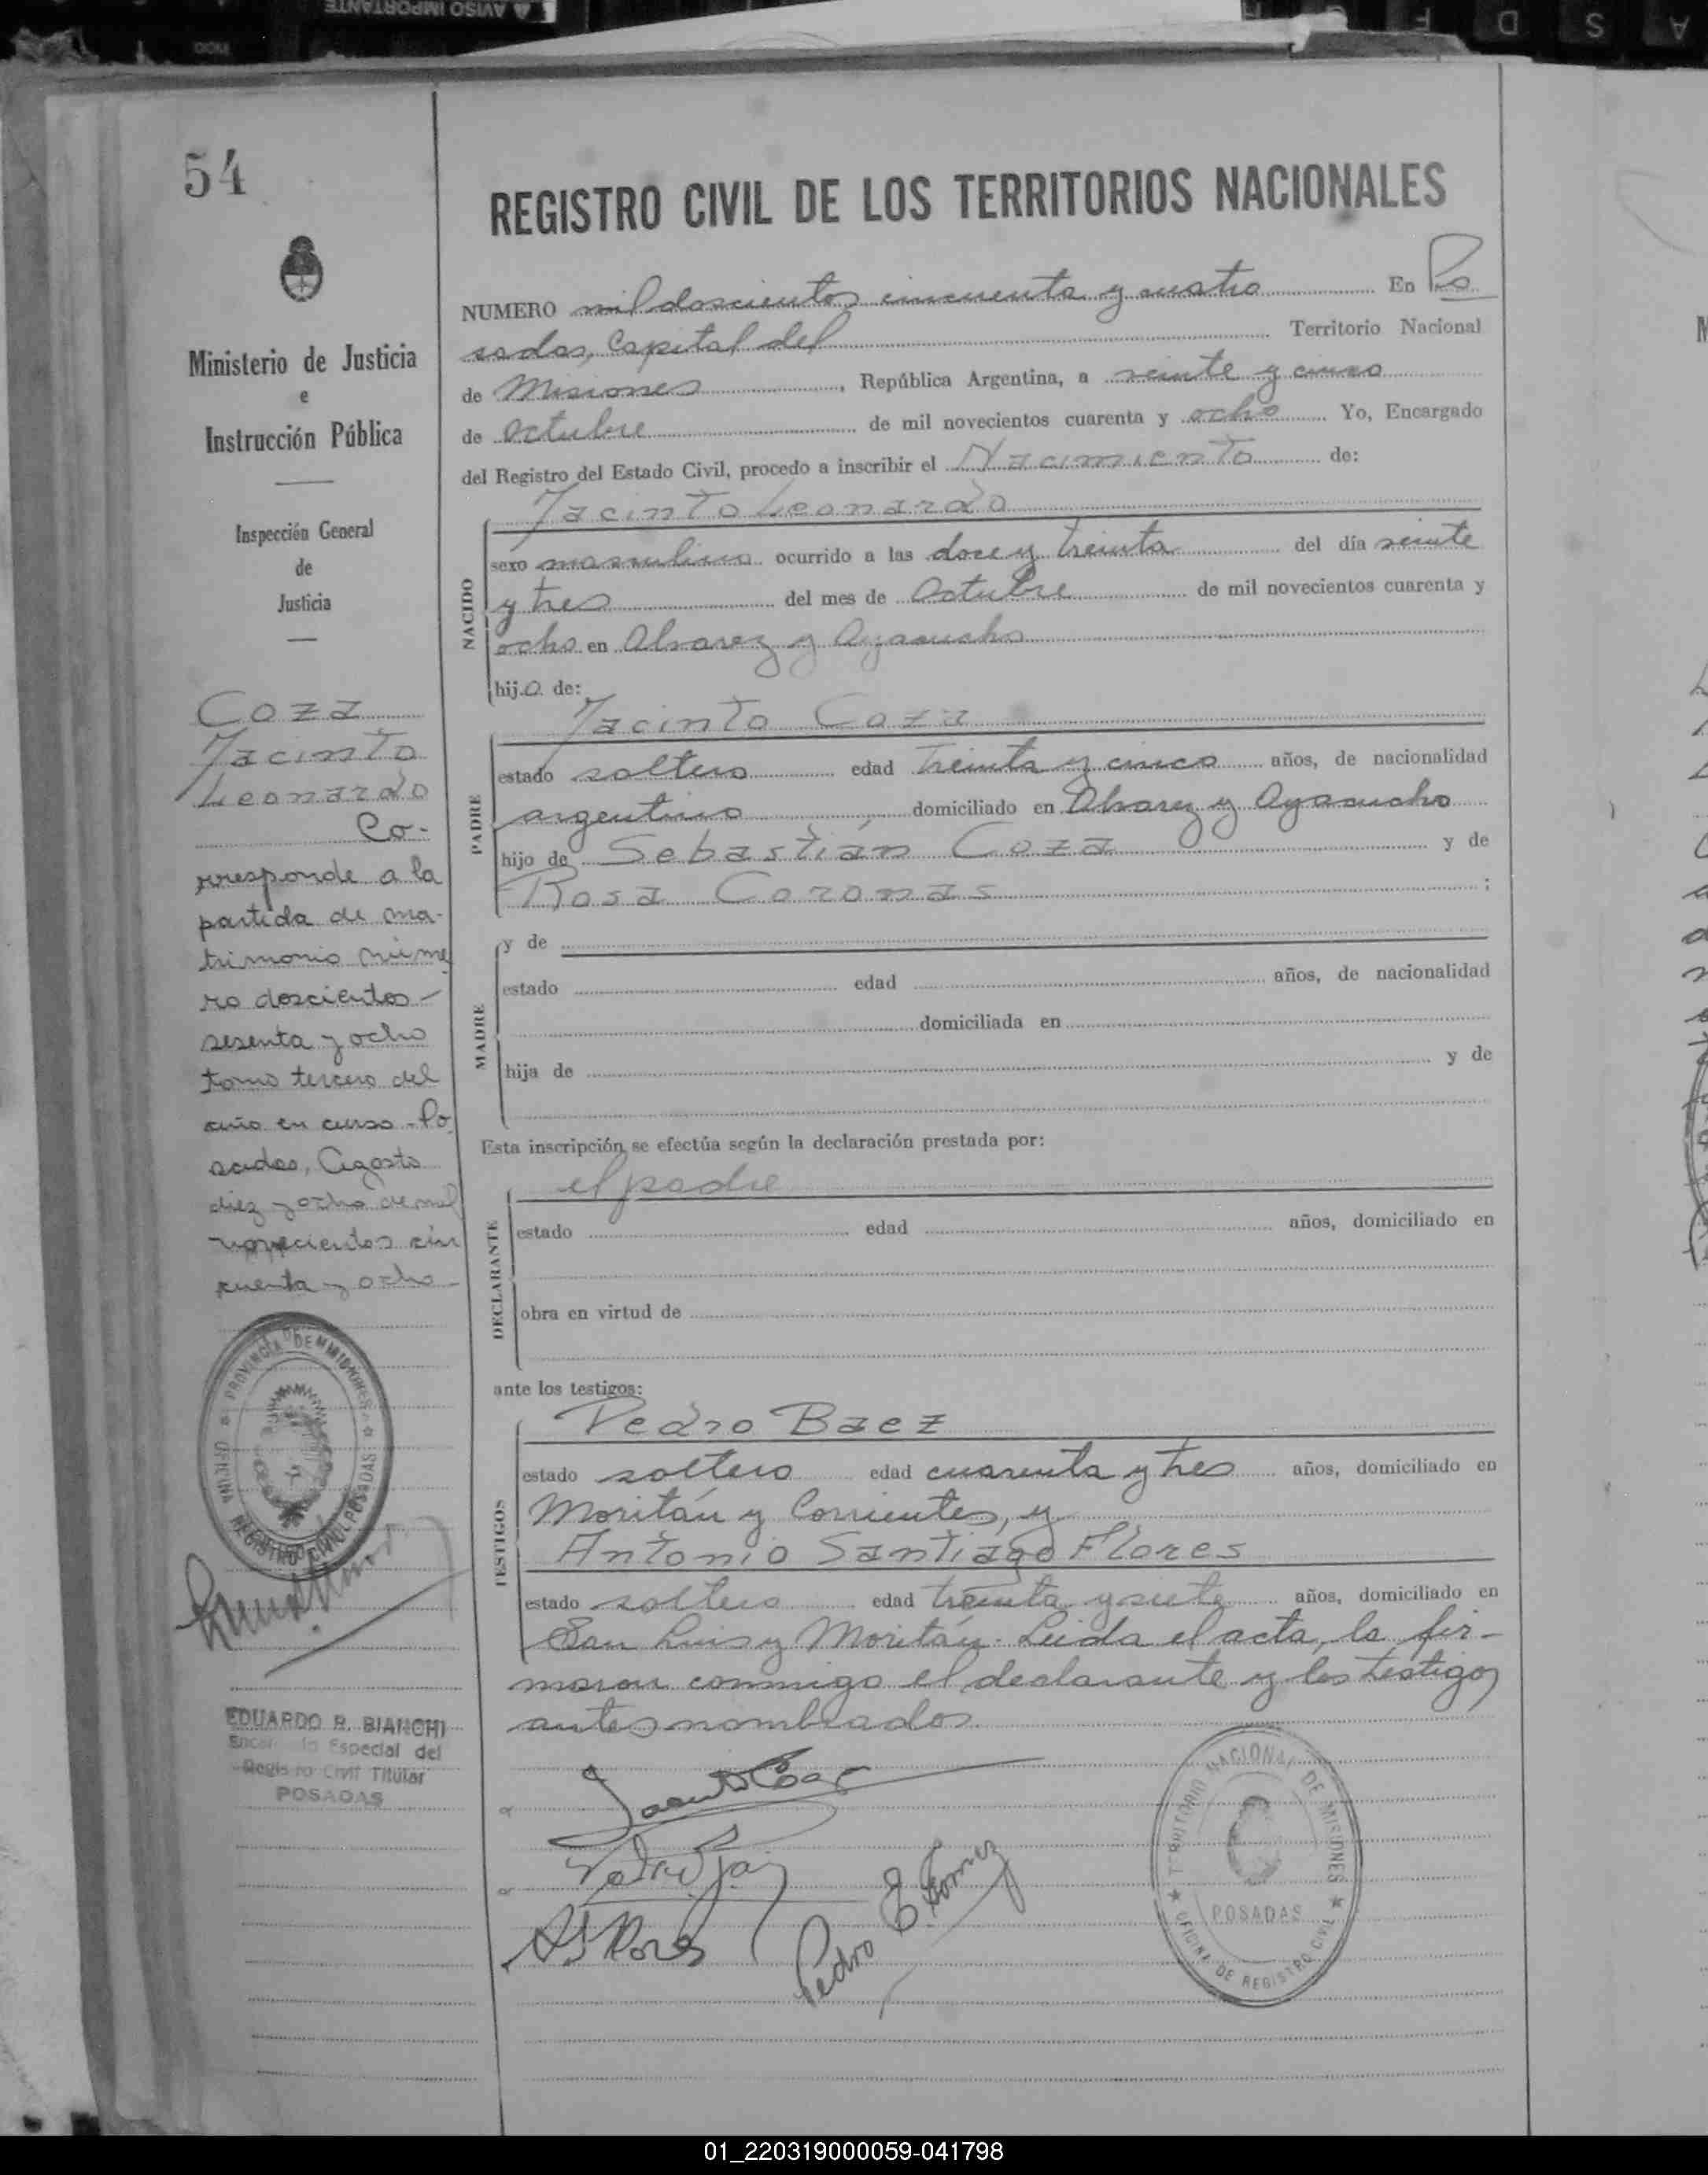 AVISO IMPORTANTE
INICIO
A S D F
54
REGISTRO CIVIL DE LOS TERRITORIOS NACIONALES
Ministerio de Justicia
e
Instrucción Pública
Inspección General
de
Justicia
Coza
Jacinto
Leonardo
Co-
rresponde a la
partida de ma-
trimonio núme
ro doscientos
sesenta y ocho
tomo tercero del
año en curso - Po
sadas, Agosto
diez y ocho de mil
novecientos cin
cuenta y ocho
PROVINCIA DE MISIONES
OFICINA REGISTRO CIVIL POSADAS
EDUARDO R. BIANCHI
Encargado Especial del
Registro Civil Titular
POSADAS
NUMERO mil doscientos cincuenta y cuatro En Po
sadas, Capital del Territorio Nacional
de Misiones, República Argentina, a veinte y cinco
de Octubre de mil novecientos cuarenta y ocho Yo, Encargado
del Registro del Estado Civil, procedo a inscribir el Nacimiento de:
NACIDO
Jacinto Leonardo
sexo masculino ocurrido a las doce y treinta del día veinte
y tres del mes de Octubre de mil novecientos cuarenta y
ocho en Alvarez y Ayacucho
hijo de:
PADRE
Jacinto Coza
estado soltero edad treinta y cinco años, de nacionalidad
argentino domiciliado en Alvarez y Ayacucho
hijo de Sebastián Coza y de
Rosa Coronas ;
MADRE
y de
estado edad años, de nacionalidad
domiciliada en
hija de y de
Esta inscripción se efectúa según la declaración prestada por:
DECLARANTE
el padre
estado edad años, domiciliado en
obra en virtud de
ante los testigos:
TESTIGOS
Pedro Baez
estado soltero edad cuarenta y tres años, domiciliado en
Moritán y Corrientes, y
Antonio Santiago Flores
estado soltero edad treinta y siete años, domiciliado en
San Luis y Moritán. Leída el acta, la fir-
maron conmigo el declarante y los testigos
antes nombrados
Jacinto Coza
Pedro Baez
AS Flores
Pedro E. Gomez
TERRITORIO NACIONAL DE MISIONES
POSADAS
OFICINA DE REGISTRO CIVIL
01_220319000059-041798